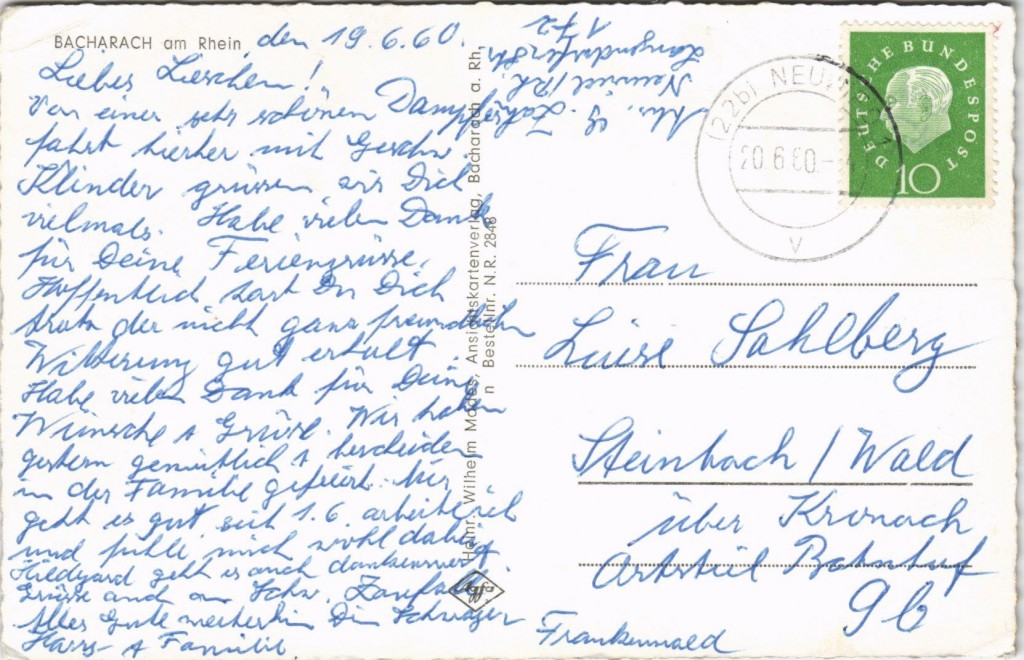 BACHARACH am Rhein
den 19.6.60.
Liebes Lieschen!
Von einer sehr schönen Dampfer
fahrt hierher mit Geschw.
Klinder grüssen wir Dich
vielmals. Habe vielen Dank
für Deine Feriengrüsse.
Hoffentlich hast Du Dich
trotz der nicht ganz freundlichen
Witterung gut erholt.
Habe vielen Dank für Deine
Wünsche + Grüsse. Wir haben
gestern gemütlich + bescheiden
in der Familie gefeiert. Mir
geht es gut seit 1.6. arbeite ich
und fühle mich wohl dabei.
Hildegard geht es auch dankenswert.
Grüsse auch an Schw.
Alles Gute weiterhin Dein Schwager
Harry + Familie
Abs. G.
Neuwied/Rh.
Langendorferstr.
172
Helmr. Wilhelm Modes, Ansichtskartenverlag, Bacharach a. Rh.
n Bestellnr. N.R. 2848
Agfa
(22b) NEUWIED 1
20.6.60.
v
DEUTSCHE BUNDESPOST
10
Frau
Luise Sahlberg
Steinbach/Wald
über Kronach
Ortsteil Bahnhof
9b
Frankenwald